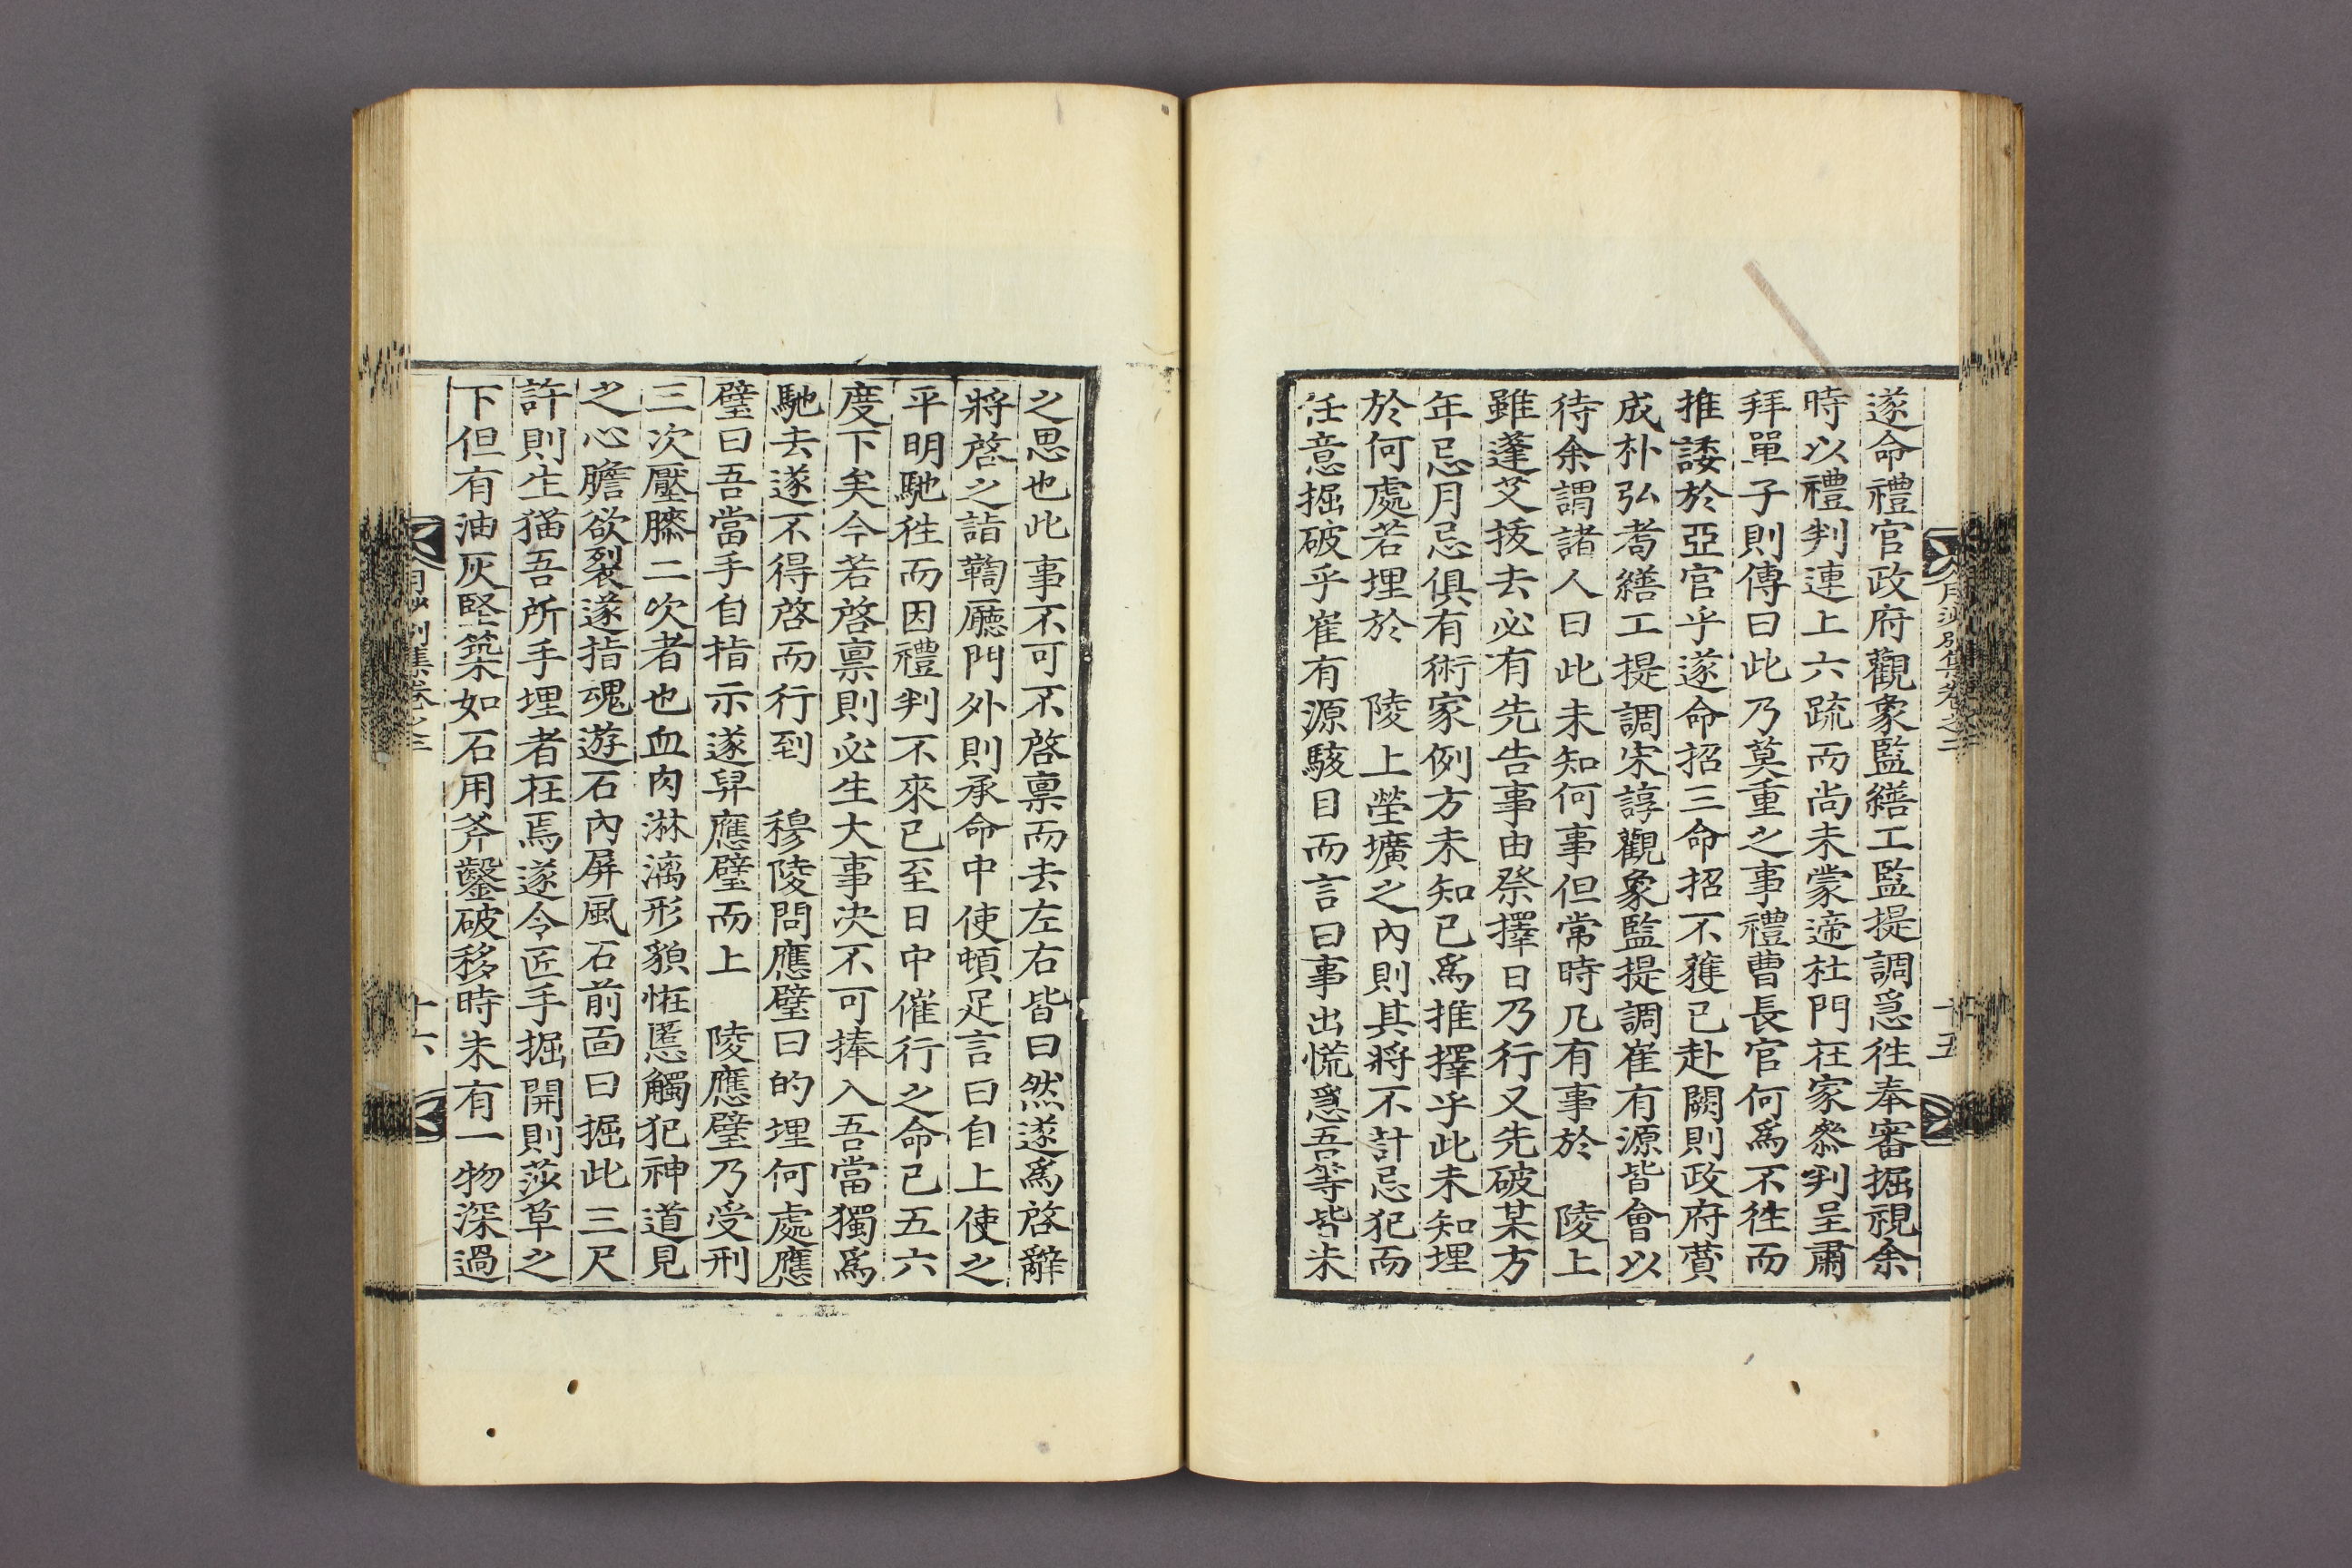 遂命禮官政府觀象監繕工監提調急徃奉審掘視余
時以禮判連上六疏而尚未蒙遆杜門在家叅判呈肅
拜單子則傳曰此乃莫重之事禮曹長官何爲不徃而
推諉於亞官乎遂命招三命招不獲已赴闕則政府賛
成朴弘耉繕工提調宋諄觀象監提調崔有源皆會以
待余謂諸人曰此未知何事但常時凡有事於 陵上
雖蓬艾拔去必有先告事由祭擇日乃行又先破某方
年忌月忌俱有術家例方未知已爲推擇乎此未知埋
於何處若埋於 陵上塋壙之內則其將不計忌犯而
任意掘破乎崔有源駭目而言曰事出慌急吾等皆未
月沙別集卷之二
十五
之思也此事不可不啓稟而去左右皆曰然遂爲啓辭
將啓之詣鞫廳門外則承命中使頓足言曰自上使之
平明馳徃而因禮判不來已至日中催行之命已五六
度下矣今若啓稟則必生大事决不可捧入吾當獨爲
馳去遂不得啓而行到 穆陵問應璧曰的埋何處應
璧曰吾當手自指示遂舁應璧而上 陵應璧乃受刑
三次壓膝二次者也血肉淋漓形貌恠慝觸犯神道見
之心膽欲裂遂指魂遊石內屏風石前面曰掘此三尺
許則生猫吾所手埋者在焉遂令匠手掘開則莎草之
下但有油灰堅築如石用斧鑿破移時未有一物深過
月沙別集卷之二
十六